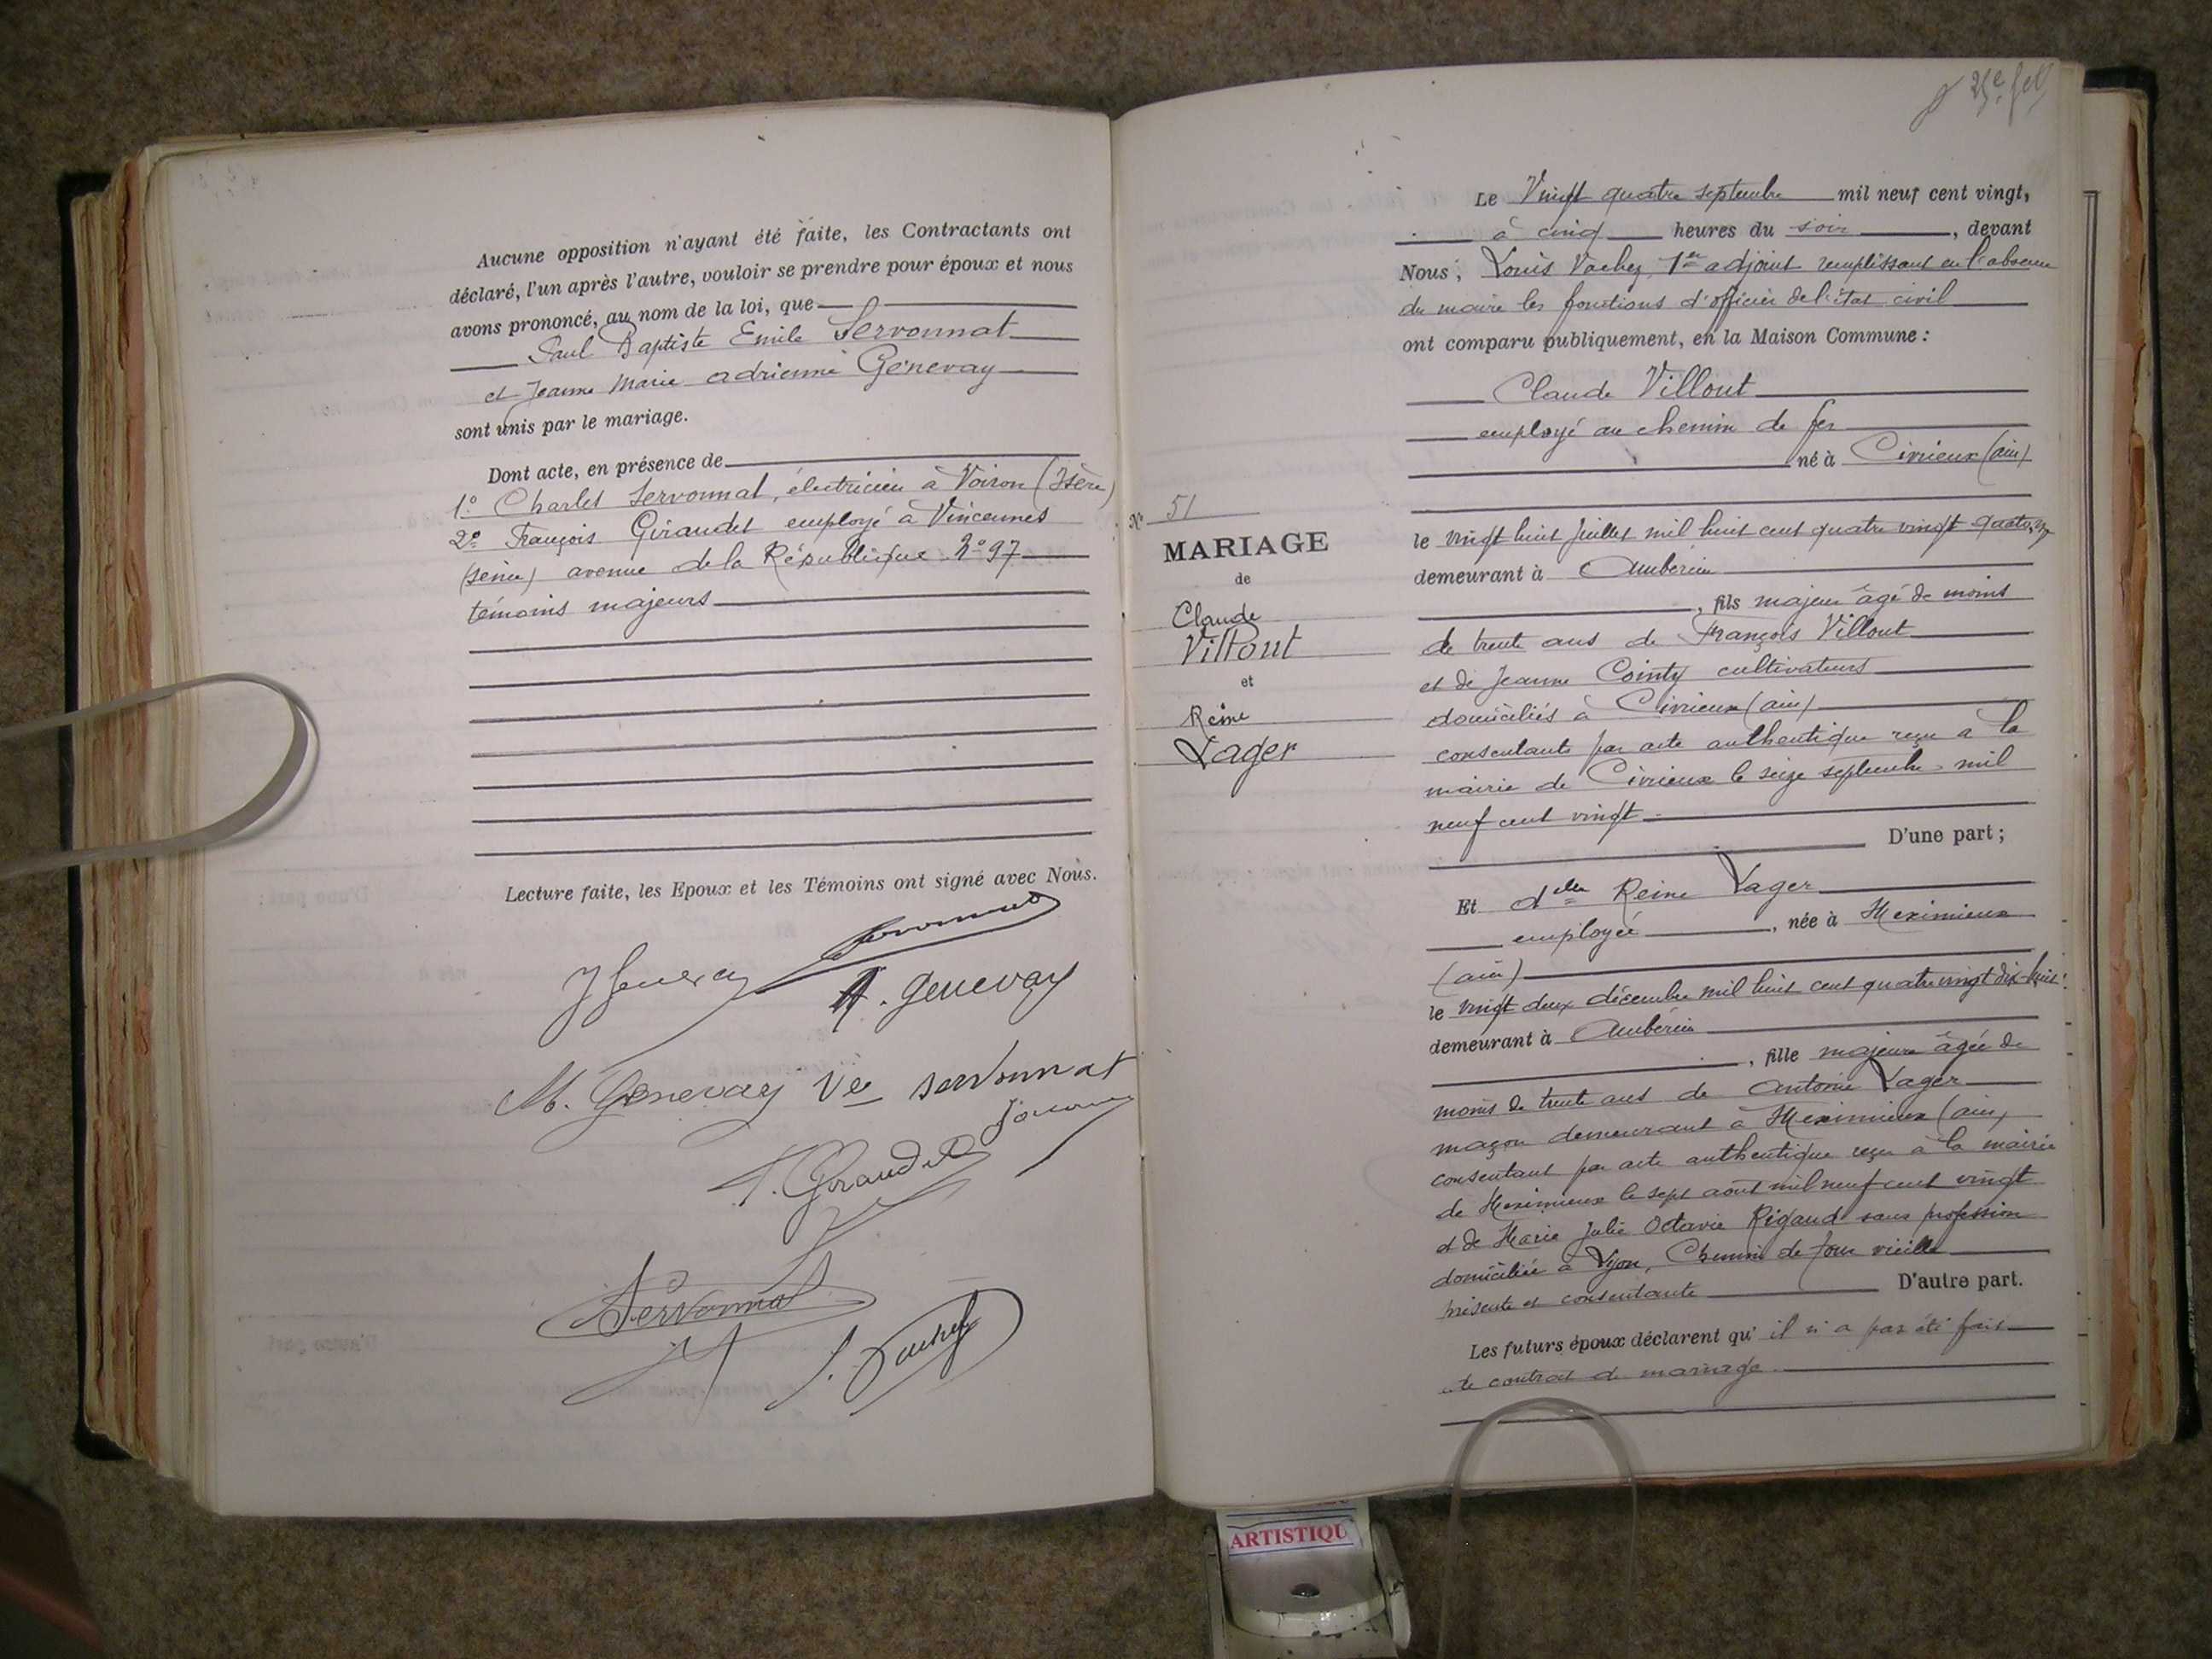 Aucune opposition n'ayant été faite, les Contractants ont
déclaré, l'un après l'autre, vouloir se prendre pour époux et nous
avons prononcé, au nom de la loi, que
Paul Baptiste Emile Servonnat
et Jeanne Marie Adrienne Genevay
sont unis par le mariage.
Dont acte, en présence de
1º Charles Servonnat, électricien à Voiron (Isère)
2º François Giraudet employé à Vincennes
(seine) avenue de la République Nº 97
témoins majeurs
Lecture faite, les Epoux et les Témoins ont signé avec Nous.
Servonnat
J Genevay
A. Genevay
M. Genevay Vve Servonnat
F. Giraudet
Servonnat
L. Vachez
25e fet
Le Vingt quatre septembre mil neuf cent vingt,
à cinq heures du soir, devant
Nous, Louis Vachez, 1er adjoint remplissant en l'absence
du maire les fonctions d'officier de l'état civil
ont comparu publiquement, en la Maison Commune :
Claude Villout
employé au chemin de fer
né à Civrieux (ain)
le vingt huit juillet mil huit cent quatre vingt quatorze
demeurant à Ambérieu
, fils majeur âgé de moins
de trente ans de François Villout
et de Jeanne Cointy cultivateurs
domiciliés à Civrieux (ain)
consentants par acte authentique reçu à la
mairie de Civrieux le seize septembre mil
neuf cent vingt
D'une part ;
Et dlle Reine Lager
employée, née à Meximieux
(ain)
le vingt deux décembre mil huit cent quatre vingt dix-huit
demeurant à Ambérieu
, fille majeure âgée de
moins de trente ans de Antoine Lager
maçon demeurant à Meximieux (ain)
consentant par acte authentique reçu à la mairie
de Meximieux le sept août mil neuf cent vingt
et de Marie Julie Octavie Rigaud sans profession
domiciliée à Lyon, Chemin de four vieille
présente et consentante D'autre part.
Les futurs époux déclarent qu'il n'a pas été fait
de contrat de mariage.
Nº 51
MARIAGE
de
Claude
Villout
et
Reine
Lager
ARTISTIQU